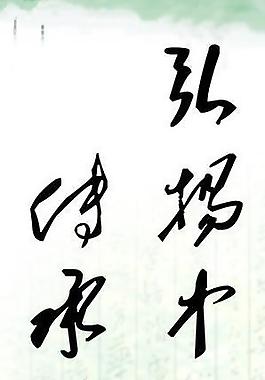 弘扬中
传承